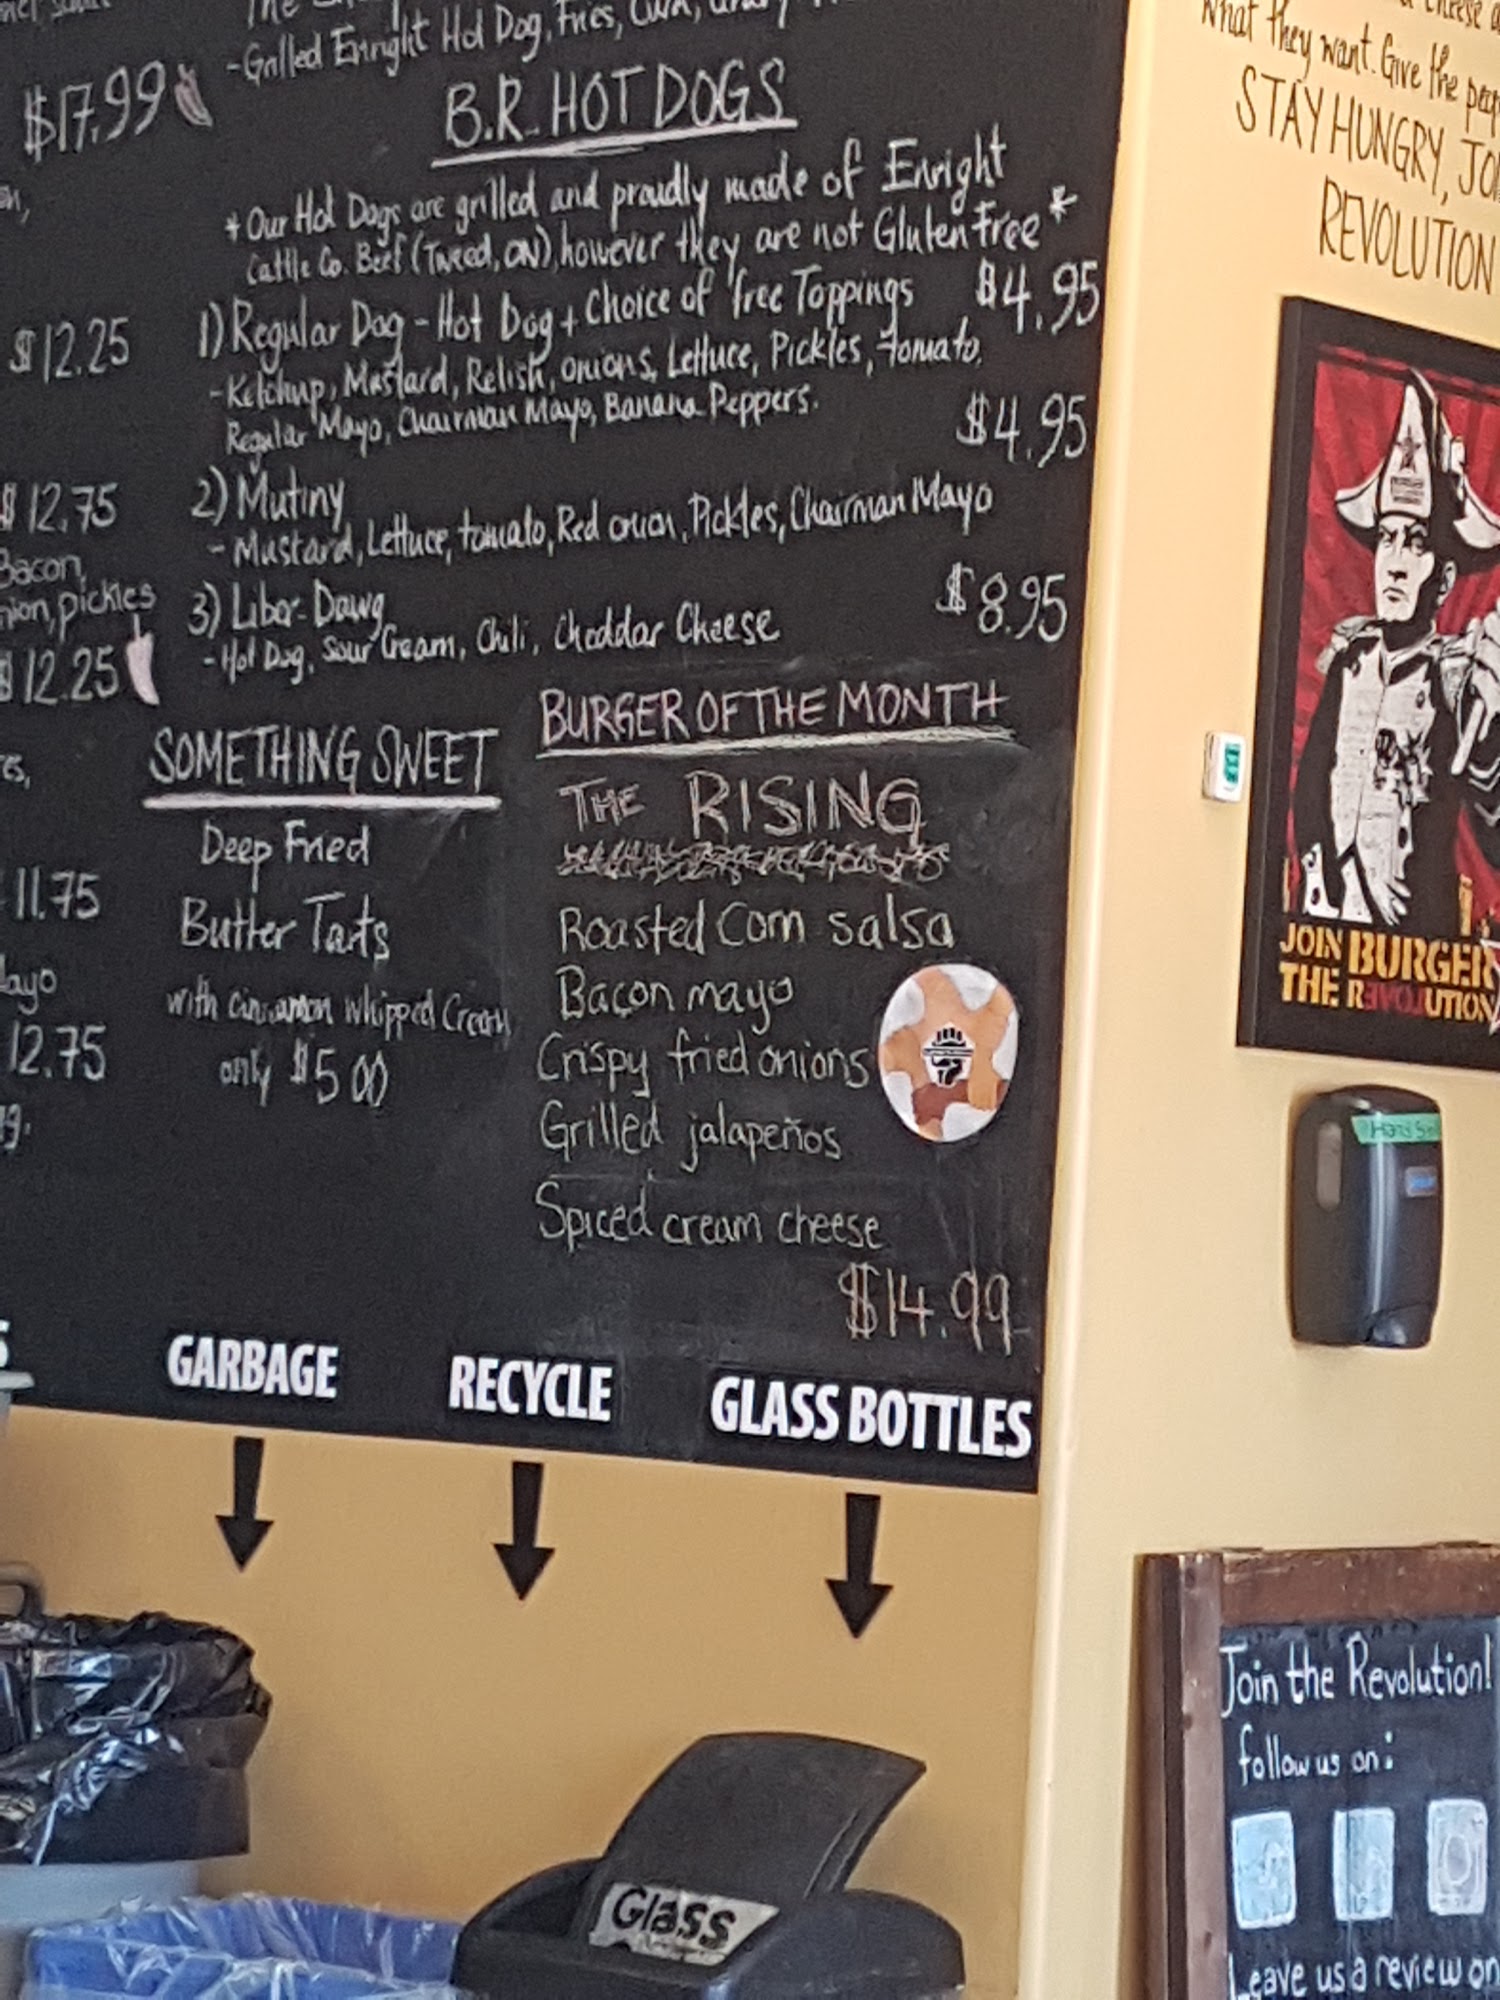 - Grilled Enright Hot Dog, Fries,
$17.99
B.R. HOT DOGS
* Our Hot Dogs are grilled and proudly made of Enright
Cattle Co. Beef (Tweed, ON), however they are not Gluten Free *
1) Regular Dog - Hot Dog + Choice of free Toppings $4.95
- Ketchup, Mustard, Relish, onions, Lettuce, Pickles, tomato,
Regular Mayo, Chairman Mayo, Banana Peppers.
2) Mutiny $4.95
- Mustard, Lettuce, tomato, Red onion, Pickles, Chairman Mayo
3) Liber-Dawg $8.95
- Hot Dog, Sour Cream, Chili, Cheddar Cheese
$12.25
$12.75
Bacon,
pickles
$12.25
11.75
12.75
SOMETHING SWEET
Deep Fried
Butter Tarts
with cinnamon whipped Cream
only $5.00
BURGER OF THE MONTH
THE RISING
Roasted Corn salsa
Bacon mayo
Crispy fried onions
Grilled jalapeños
Spiced cream cheese
$14.99
GARBAGE
RECYCLE
GLASS BOTTLES
Glass
what they want. Give the
STAY HUNGRY,
REVOLUTION
JOIN BURGER
THE REVOLUTION
Join the Revolution!
follow us on:
Leave us a review on